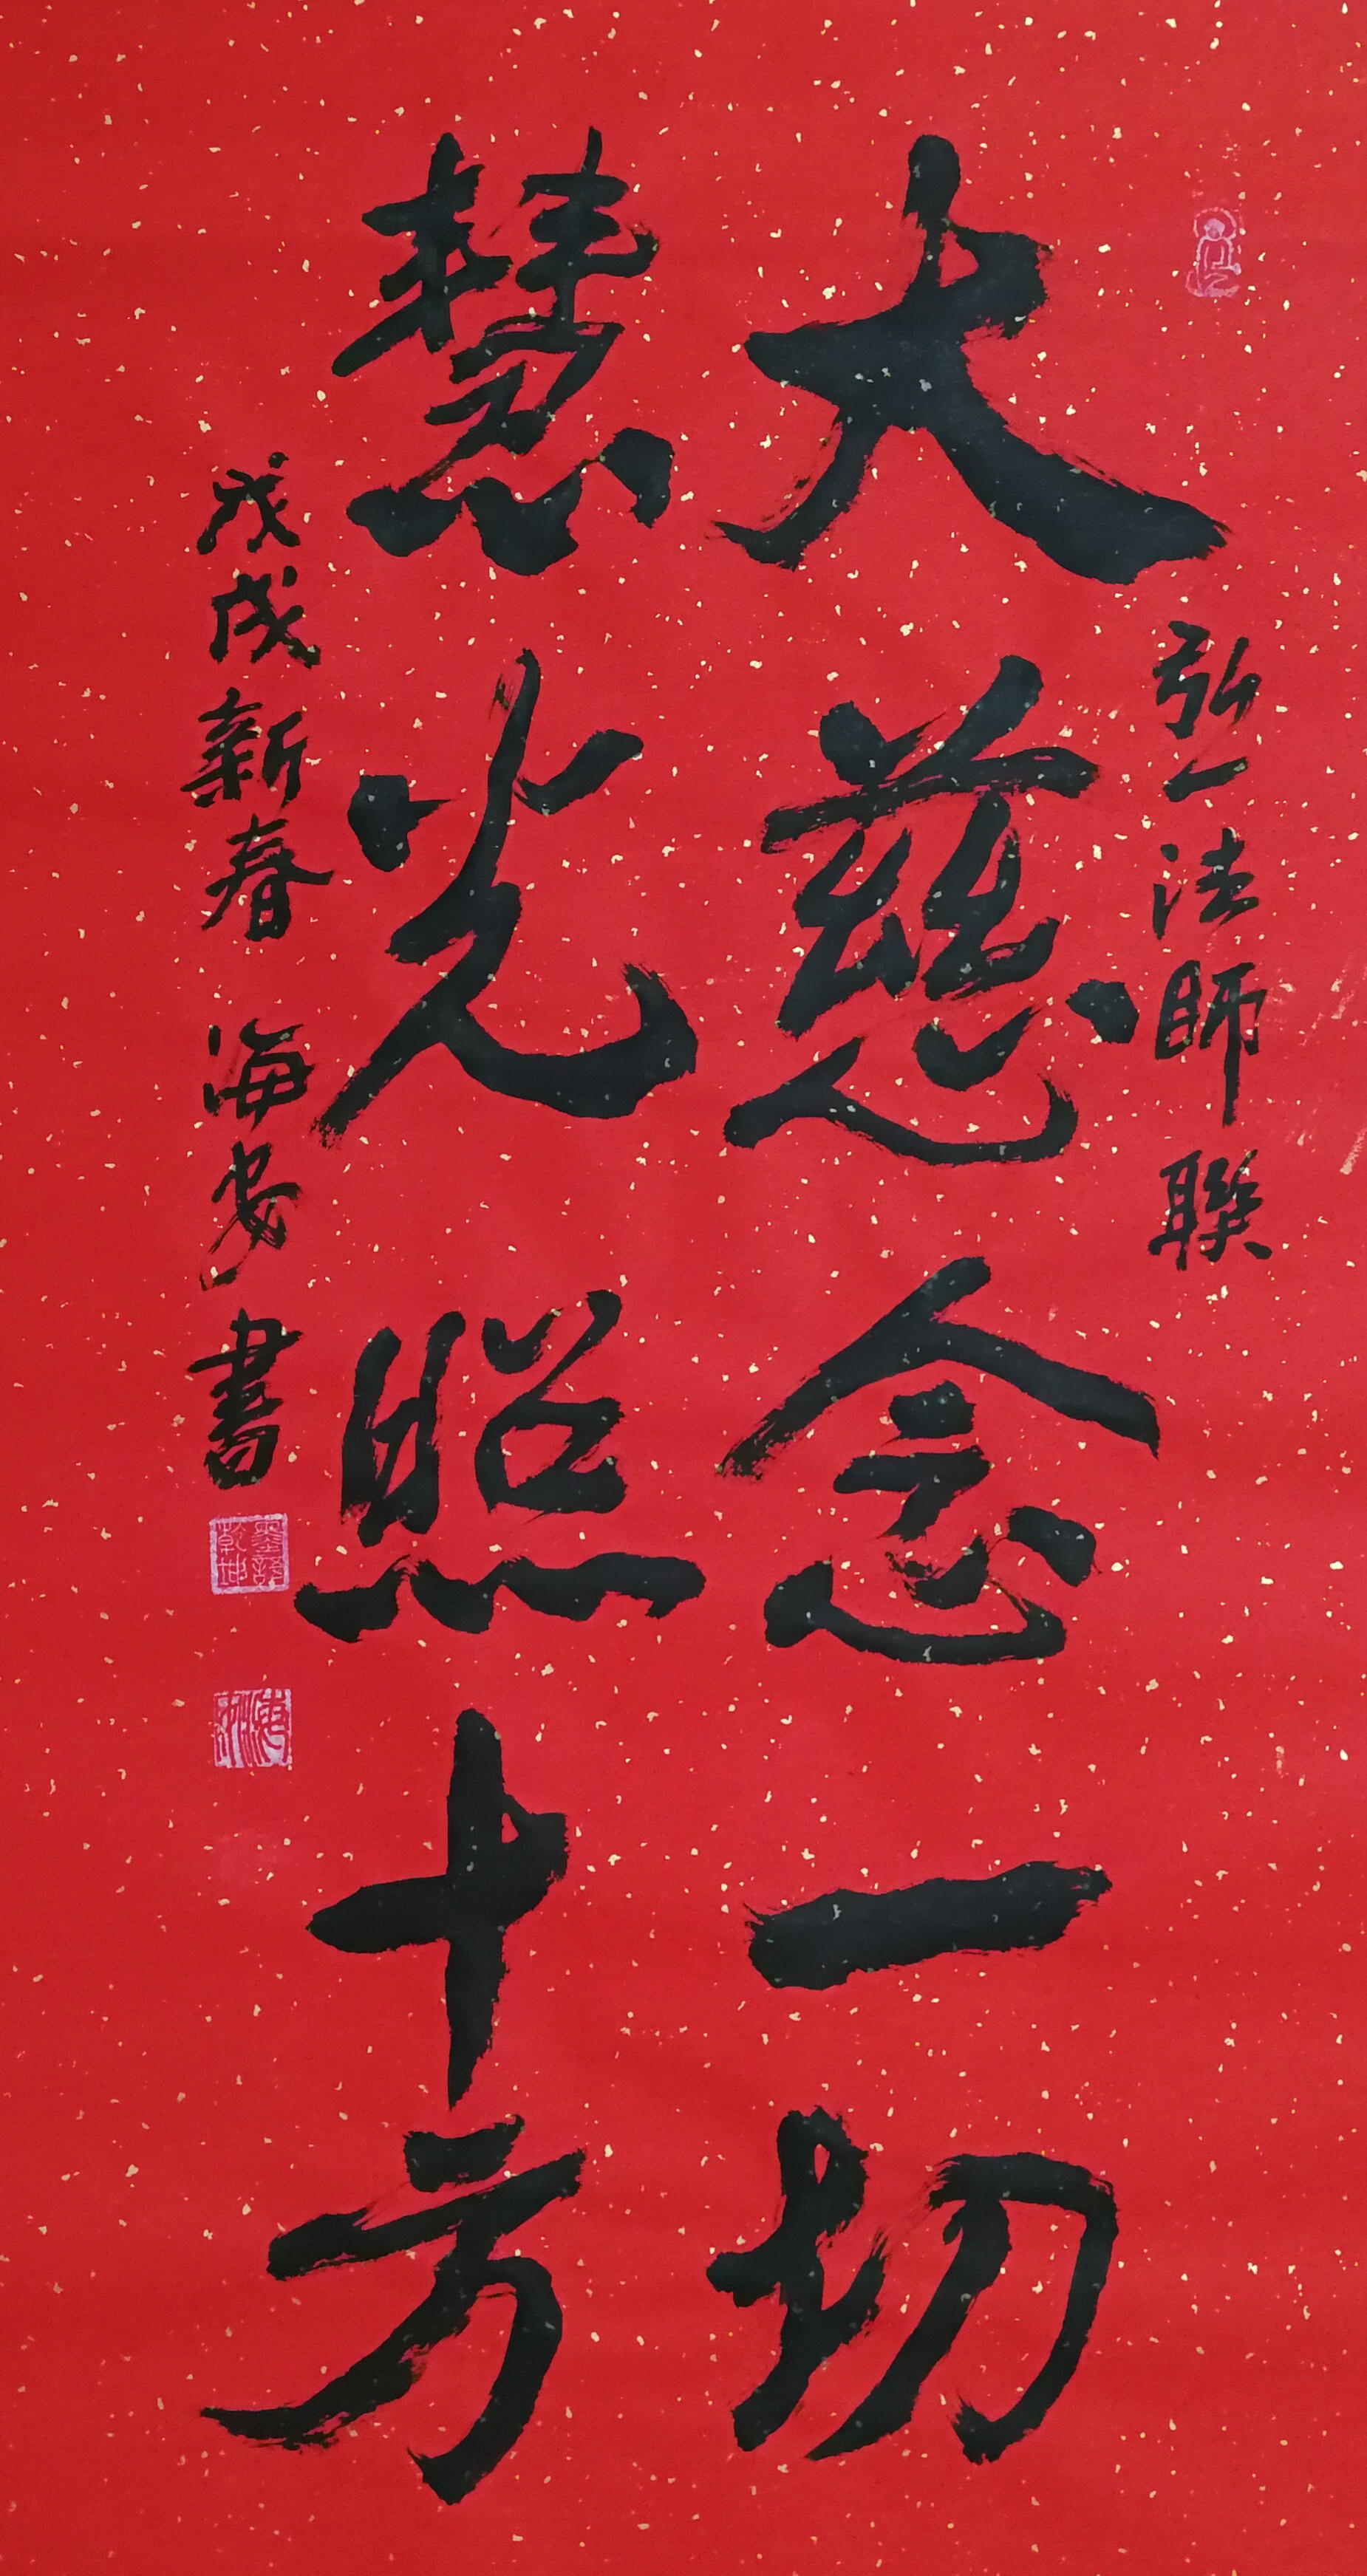 弘一法師聯
大慈念一切
慧光照十方
戊戌新春 海安書